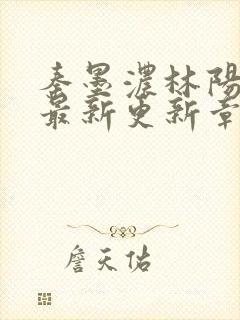 秦墨濃林陽
最新更新章
詹天佑